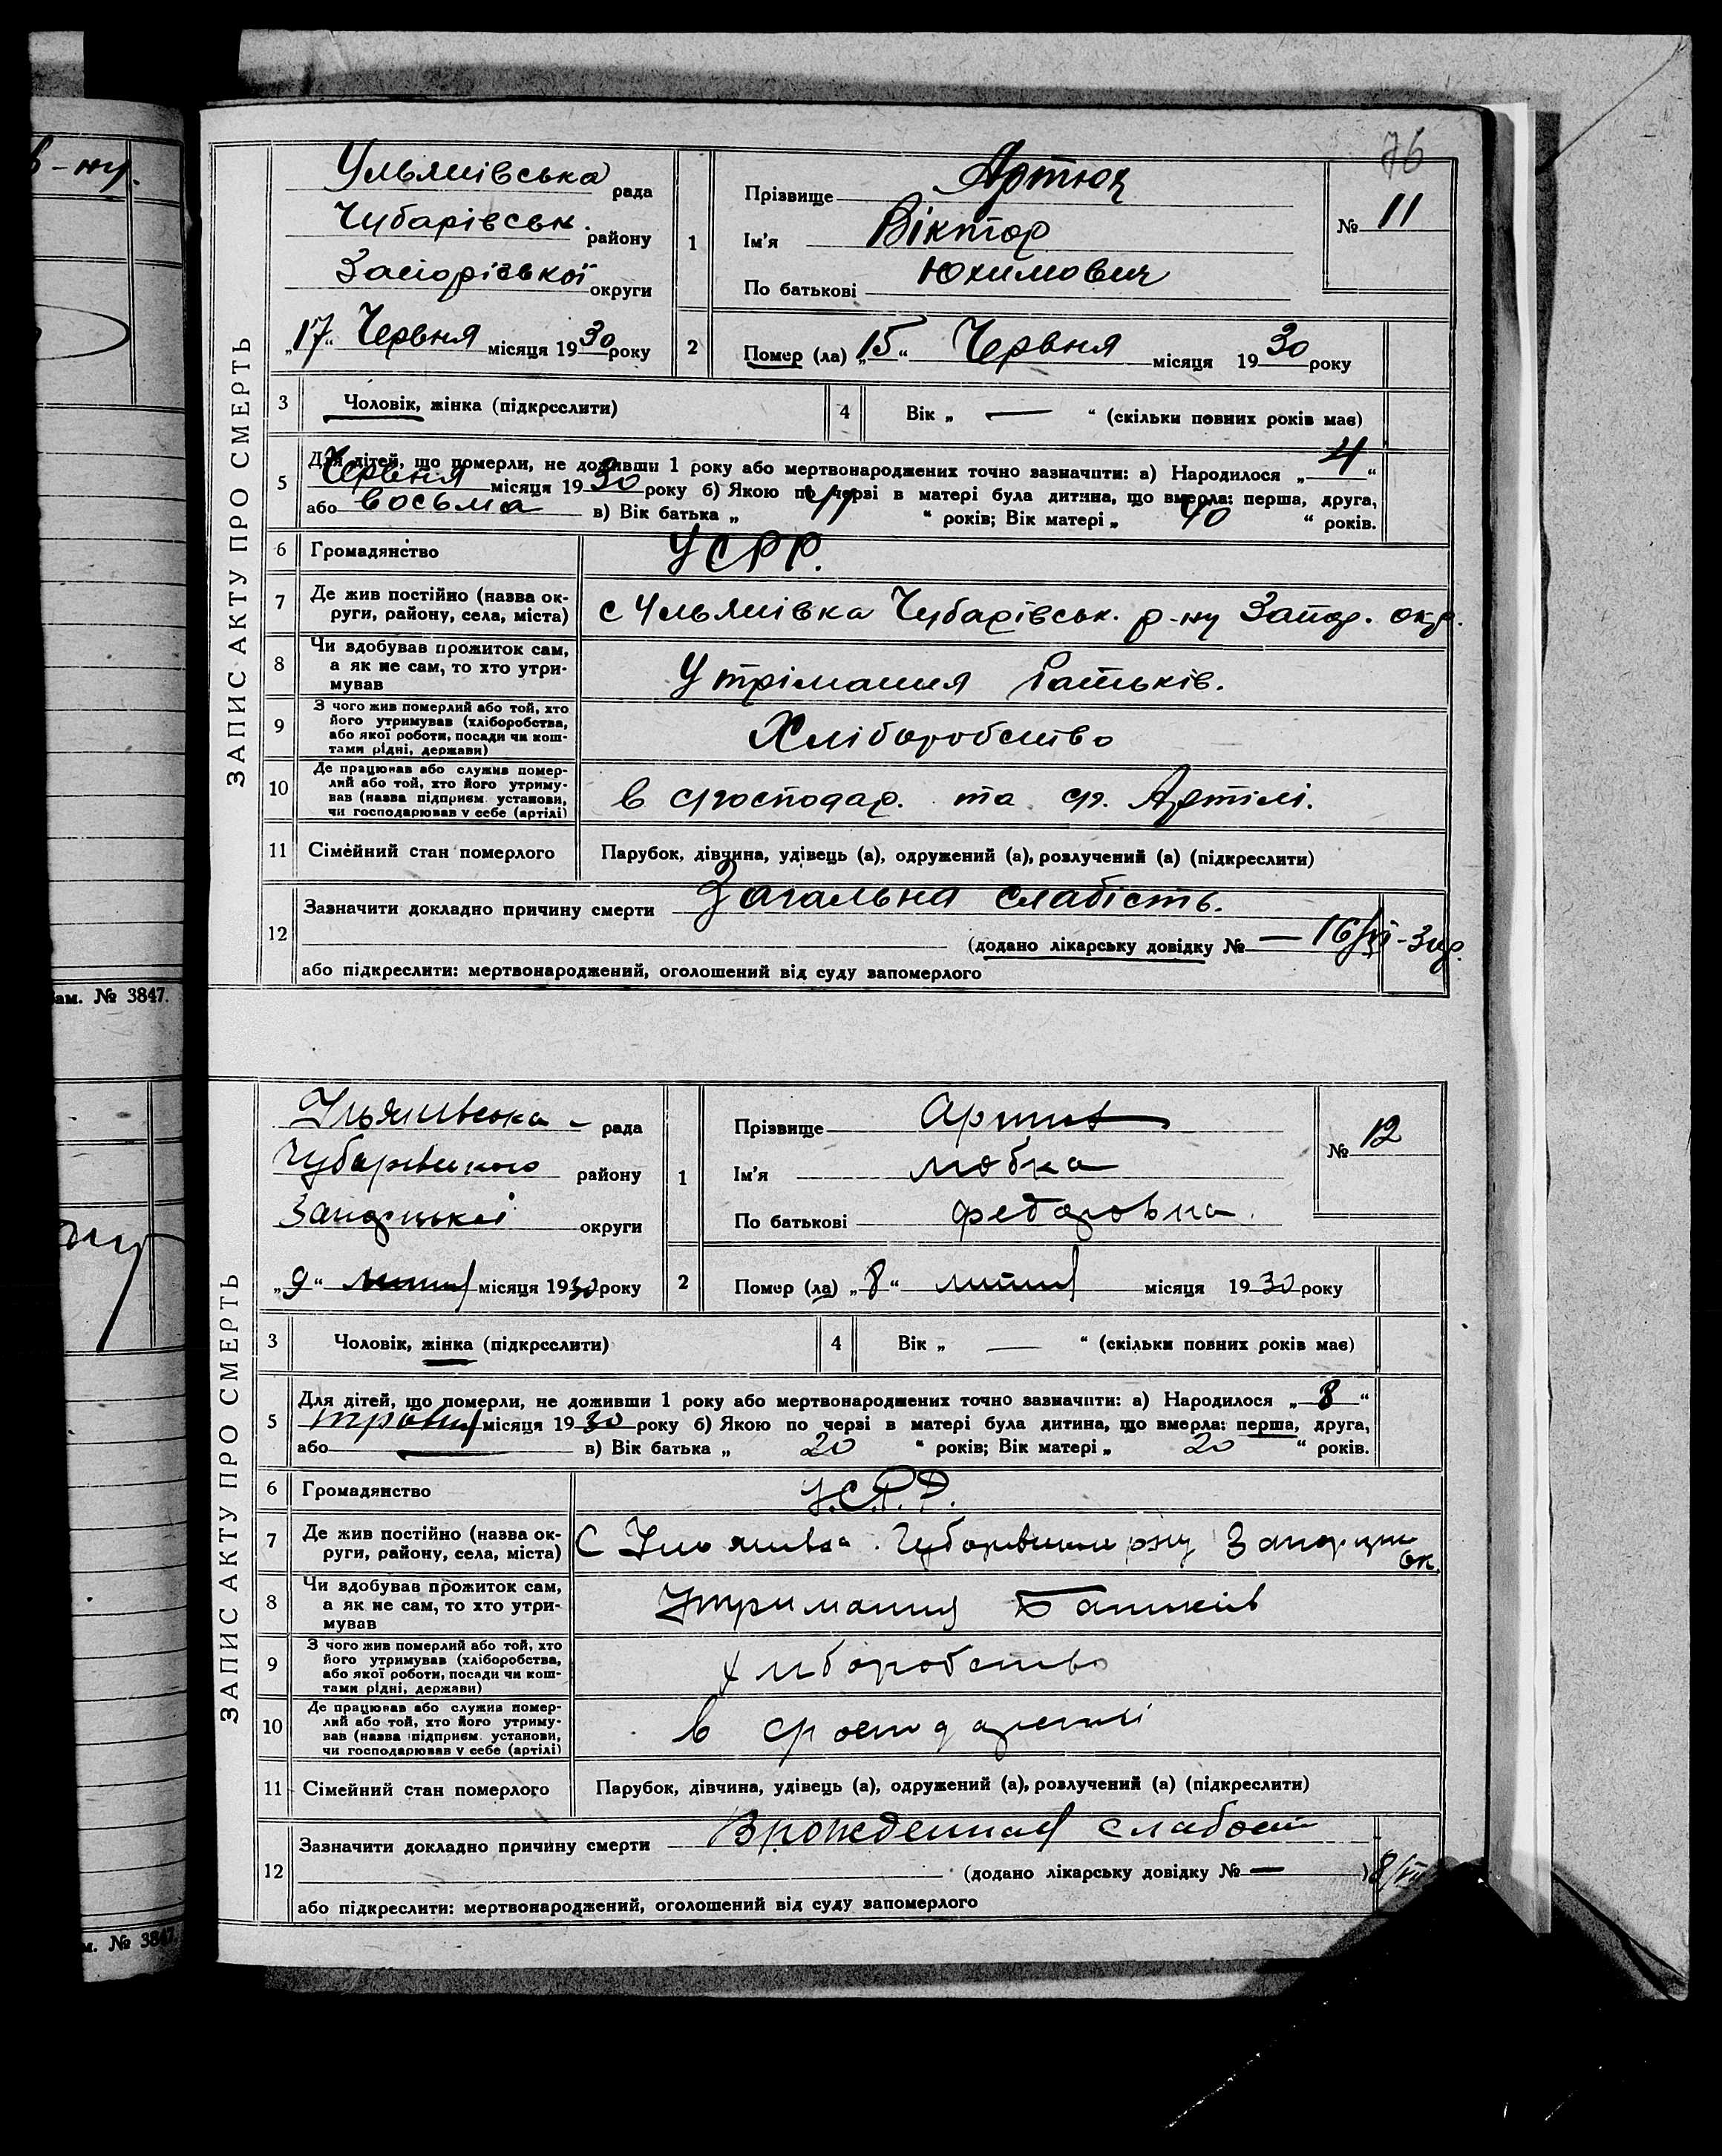 76
ЗАПИС АКТУ ПРО СМЕРТЬ
Ульянівська рада
Чубарівськ. району
Запорізької округи
„17“ Червня місяця 1930 року
1
Прізвище Артюх
Ім'я Віктор
По батькові Юхимович
№ 11
2
Помер (ла) „15“ Червня місяця 1930 року
3 Чоловік, жінка (підкреслити)
4 Вік „ — “ (скільки повних років має)
5 Для дітей, що померли, не доживши 1 року або мертвонароджених точно зазначити: а) Народилося „4“
Червня місяця 1930 року б) Якою по черзі в матері була дитина, що вмерла: перша, друга,
або восьма в) Вік батька „ “ років; Вік матері „ 40 “ років.
6 Громадянство УСРР.
7 Де жив постійно (назва округи, району, села, міста) с Ульянівка Чубарівськ. р-ну Запор. окр.
8 Чи здобував прожиток сам,
а як не сам, то хто утри-
мував
Утрімання батьків.
9 З чого жив померлий або той, хто
його утримував (хліборобства,
або якої роботи, посади чи кош-
тами рідні, держави)
Хліборобство
10 Де працював або служив помер-
лий або той, хто його утриму-
вав (назва підприєм. установи,
чи господарював у себе (артілі)
в господар. та Артілі.
11 Сімейний стан померлого Парубок, дівчина, удівець (а), одружений (а), розлучений (а) (підкреслити)
12 Зазначити докладно причину смерти Загальна слабість.
(додано лікарську довідку № — 16/VI-
або підкреслити: мертвонароджений, оголошений від суду запомерлого
ам. № 3847.
ЗАПИС АКТУ ПРО СМЕРТЬ
Ульянівська рада
Чубарівського району
округи
„9“ липня місяця 1930 року
1
Прізвище Артюх
Ім'я Любка
По батькові Федоровна
№ 12
2
Помер (ла) „8“ липня місяця 1930 року
3 Чоловік, жінка (підкреслити)
4 Вік „ — “ (скільки повних років має)
5 Для дітей, що померли, не доживши 1 року або мертвонароджених точно зазначити: а) Народилося „8“
травня місяця 1930 року б) Якою по черзі в матері була дитина, що вмерла: перша, друга,
або — в) Вік батька „ 20 “ років; Вік матері „ 20 “ років.
6 Громадянство У.С.Р.Р.
7 Де жив постійно (назва ок-
руги, району, села, міста)
С Ульянівка рну ок.
8 Чи здобував прожиток сам,
а як не сам, то хто утри-
мував
Утримання Батьків
9 З чого жив померлий або той, хто
його утримував (хліборобства,
або якої роботи, посади чи кош-
тами рідні, держави)
Хліборобство
10 Де працював або служив помер-
лий або той, хто його утриму-
вав (назва підприєм. установи,
чи господарював у себе (артілі)
в господарстві
11 Сімейний стан померлого Парубок, дівчина, удівець (а), одружений (а), розлучений (а) (підкреслити)
12 Зазначити докладно причину смерти Врожденная слабост
(додано лікарську довідку № — ) 8/VII
або підкреслити: мертвонароджений, оголошений від суду запомерлого
м. № 3847.